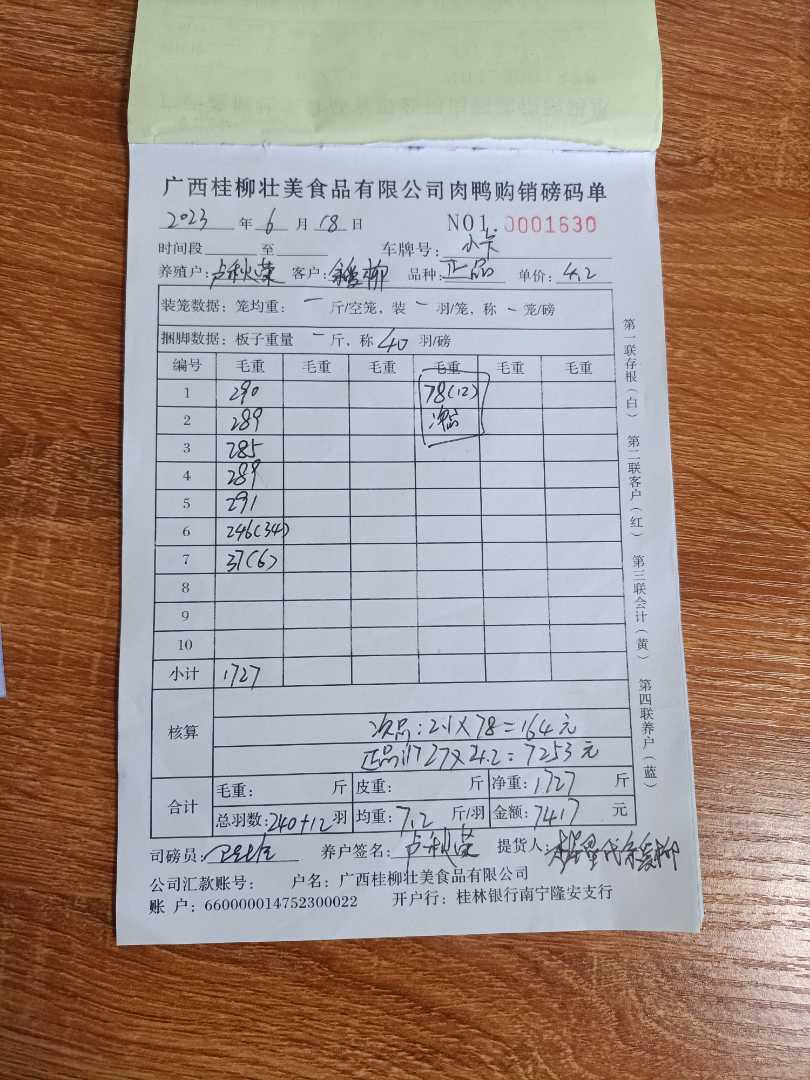 广西桂柳壮美食品有限公司肉鸭购销磅码单
2023 年 6 月 18 日 NO1. 0001630
时间段 至 车牌号: 小卡
养殖户: 卢秋荣 客户: 柳 品种: 正品 单价: 4.2
装笼数据: 笼均重: 一 斤/空笼, 装 一 羽/笼, 称 一 笼/磅
捆脚数据: 板子重量 一 斤, 称 40 羽/磅
编号 毛重 毛重 毛重 毛重 毛重 毛重
1 290 78(12)
2 289 次品
3 285
4 289
5 291
6 246(34)
7 37(6)
8
9
10
小计 1727
核算
次品: 2.1×78=164元
正品: 1727×4.2=7253元
合计
毛重: 斤 皮重: 斤 净重: 1727 斤
总羽数: 240+12 羽 均重: 7.2 斤/羽 金额: 7417 元
司磅员: 养户签名: 卢秋荣 提货人: 代 柳
公司汇款账号: 户名: 广西桂柳壮美食品有限公司
账 户: 660000014752300022 开户行: 桂林银行南宁隆安支行
第一联存根(白) 第二联客户(红) 第三联会计(黄) 第四联养户(蓝)